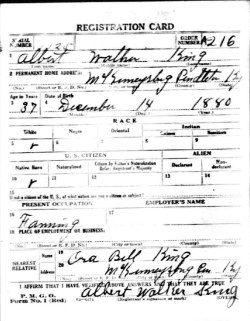 REGISTRATION CARD
SERIAL NUMBER ORDER NUMBER A216
1 Albert Walker King
2 PERMANENT HOME ADDRESS:
McKinneysburg Pendleton Ky
Age in Years Date of Birth
37 December 14 1880
RACE
White Negro Oriental Indian
Citizen
U. S. CITIZEN ALIEN
Native Born Naturalized Citizen by Father's Naturalization Before Registrant's Majority Declarant Non-declarant
If not a citizen of the U. S., of what nation are you a citizen or subject?
PRESENT OCCUPATION EMPLOYER'S NAME
Farming
PLACE OF EMPLOYMENT OR BUSINESS:
NEAREST RELATIVE
Name Ora Bell King
Address McKinneysburg Pen Ky
I AFFIRM THAT I HAVE VERIFIED ABOVE ANSWERS AND THAT THEY ARE TRUE
P. M. G. O.
Form No. 1 (Red) Albert Walker King